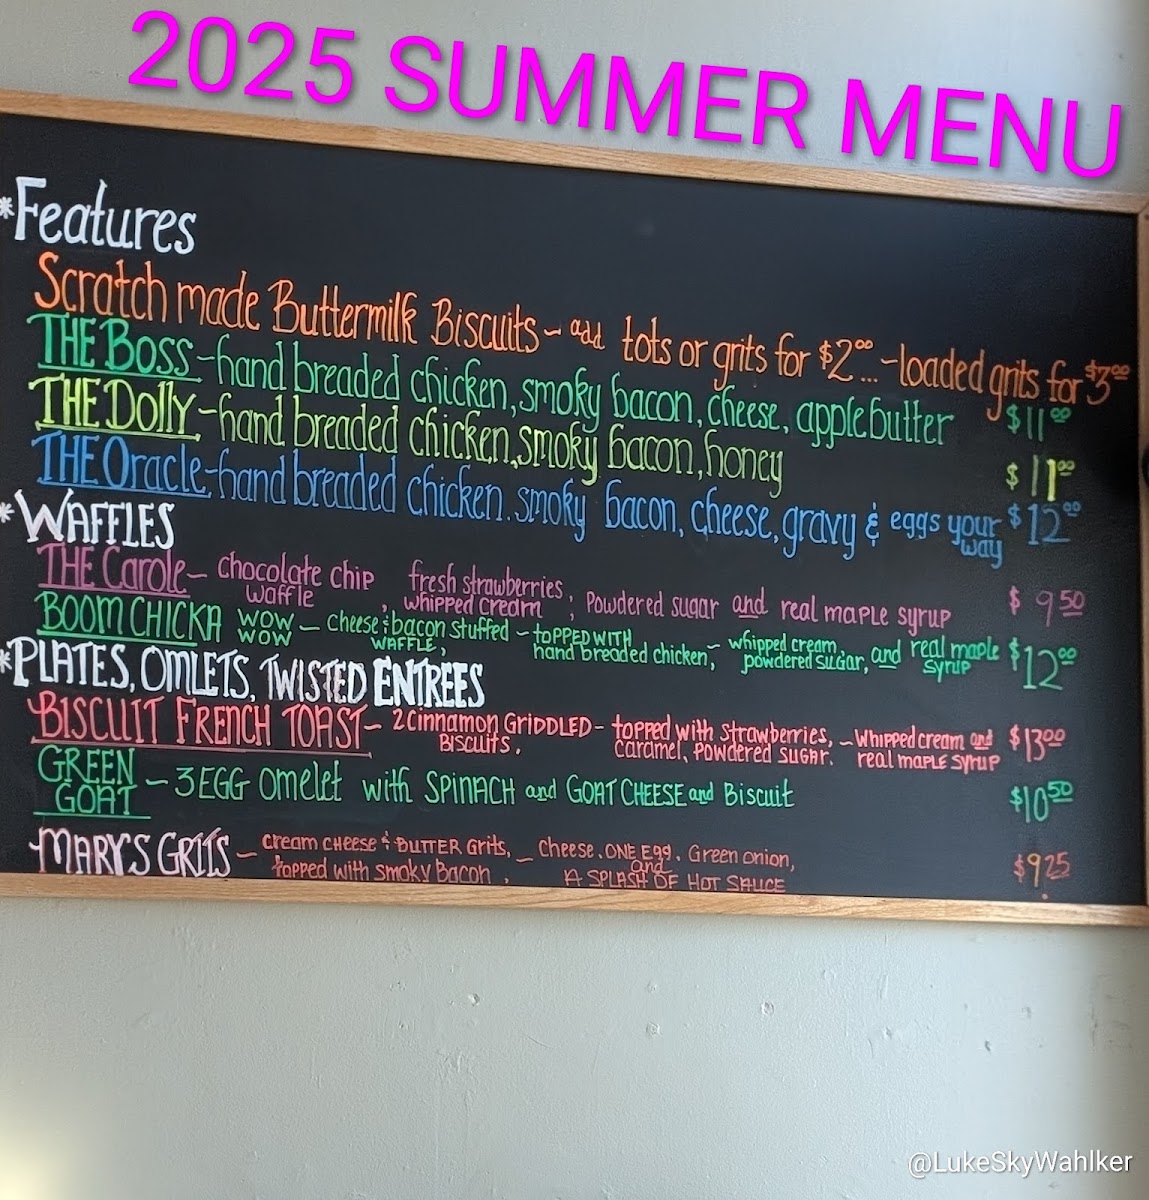 2025 SUMMER MENU
*Features
Scratch made Buttermilk Biscuits - add tots or grits for $2.00... - loaded grits for $3.00
THE BOSS - hand breaded chicken, smoky bacon, cheese, apple butter $11.00
THE Dolly - hand breaded chicken, smoky bacon, honey $11.00
THE Oracle - hand breaded chicken, smoky bacon, cheese, gravy & eggs your way $12.00
*WAFFLES
THE Carole - chocolate chip waffle, fresh strawberries, whipped cream, powdered sugar and real maple syrup $9.50
BOOM CHICKA WOW WOW - cheese & bacon stuffed waffle, - topped with hand breaded chicken, - whipped cream, powdered sugar, and real maple syrup $12.00
*PLATES, OMLETS, TWISTED ENTREES
BISCUIT FRENCH TOAST - 2 cinnamon GRIDDLED BISCUITS, - topped with strawberries, caramel, powdered sugar, - whipped cream and real maple syrup $13.00
GREEN GOAT - 3 EGG omelet with SPINACH and GOAT CHEESE and Biscuit $10.50
MARY'S GRITS - cream cheese & BUTTER Grits, topped with smoky Bacon, - cheese, ONE Egg, Green onion, and A SPLASH OF HOT SAUCE $9.25
@LukeSkyWahlker